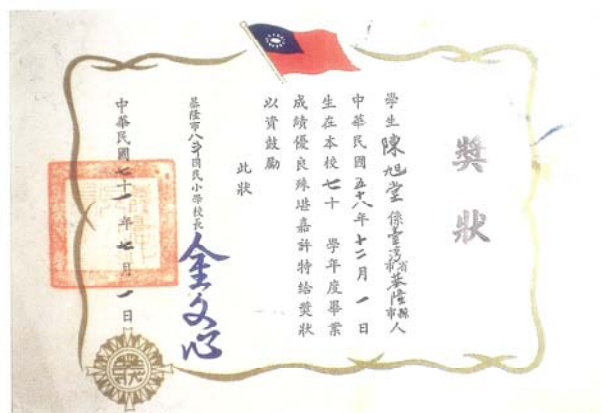 獎狀
學生陳旭堂係臺灣省市基隆縣市人
中華民國五十八年十二月一日
生在本校七十 學年度畢業
成績優良殊堪嘉許特給獎狀
以資鼓勵
此狀
基隆市八斗國民小學校長 金文心
中華民國七十一年七月一日